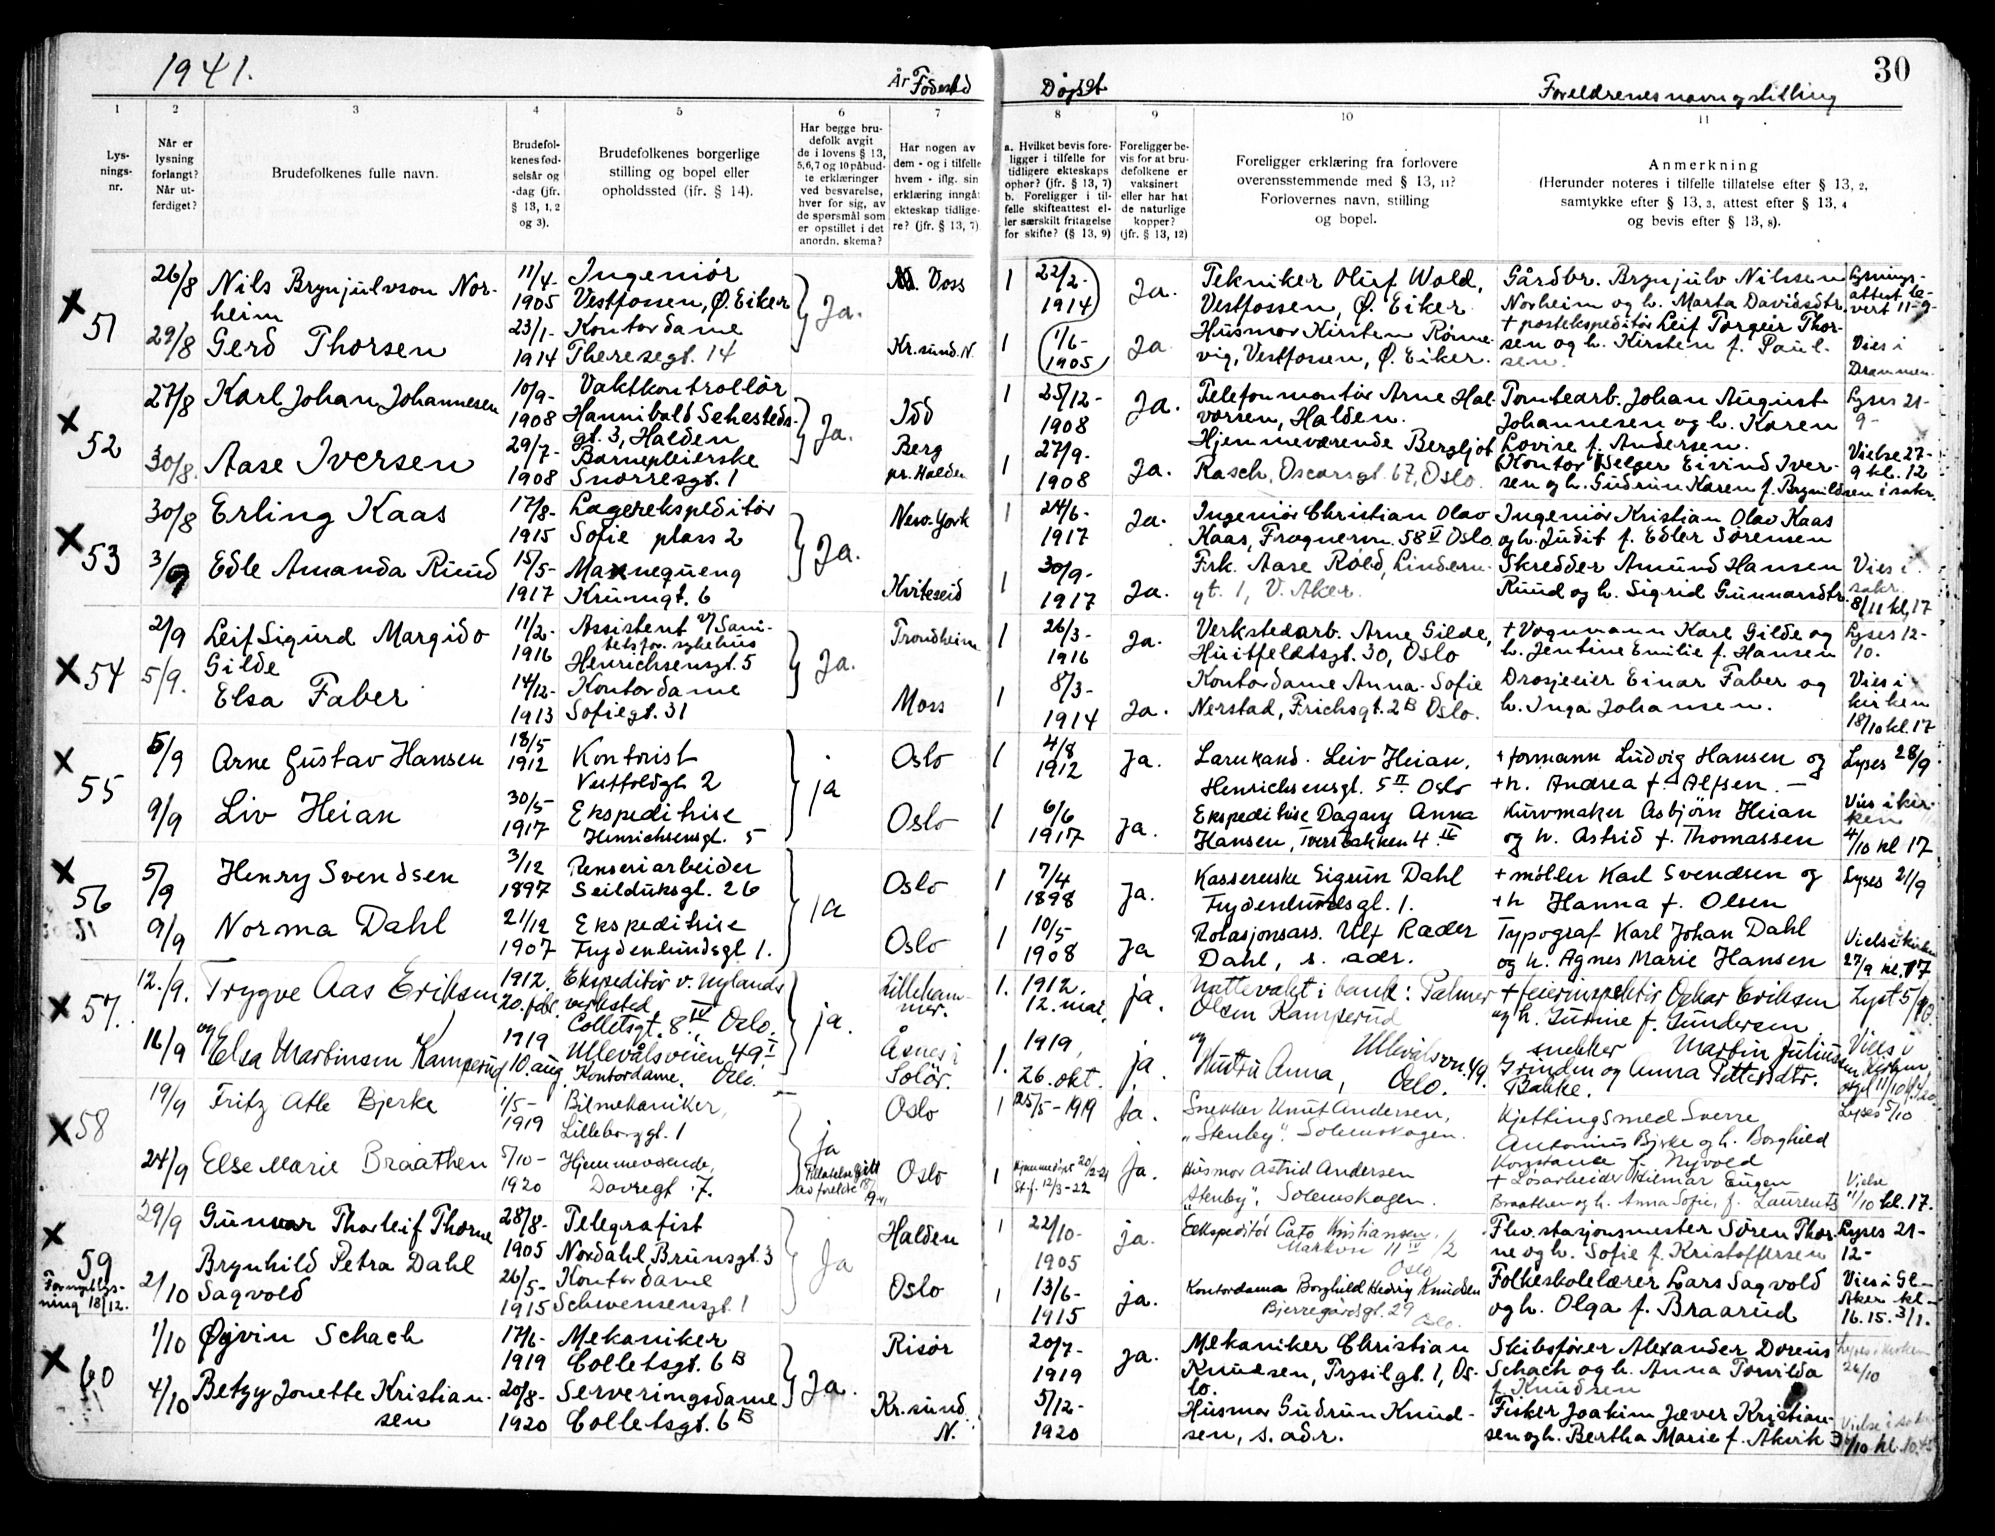 1941.
År Fødested
Døpt
Foreldrenes navn og stilling
30
1
2
3
4
5
6
7
8
9
10
11
Lys-
nings-
nr.
Når er
lysning
forlangt?
Når ut-
ferdiget?
Brudefolkenes fulle navn.
Brudefol-
kenes fød-
selsår og
-dag (jfr.
§ 13, 1, 2
og 3).
Brudefolkenes borgerlige
stilling og bopel eller
opholdssted (jfr. § 14).
Har begge bru-
defolk avgit
de i lovens § 13,
5,6,7 og 10 påbud-
te erklæringer
ved besvarelse,
hver for sig, av
de spørsmål som
er opstillet i det
anordn. skema?
Har nogen av
dem - og i tilfelle
hvem - iflg. sin
erklæring inngåt
ekteskap tidlige-
re? (jfr. § 13, 7)
a. Hvilket bevis fore-
ligger i tilfelle for
tidligere ekteskaps
ophør? (jfr. § 13, 7)
b. Foreligger i til-
felle skifteattest el-
ler særskilt fritagelse
for skifte? (§ 13, 9)
Foreligger be-
vis for at bru-
defolkene er
vaksinert
eller har hat
de naturlige
kopper?
(jfr. § 13, 12)
Foreligger erklæring fra forlovere
overensstemmende med § 13, 11?
Forlovernes navn, stilling
og bopel.
Anmerkning
(Herunder noteres i tilfelle tillatelse efter § 13, 2,
samtykke efter § 13, 3, attest efter § 13, 4
og bevis efter § 13, 8).
x 51
26/8
29/8
Nils Brynjulvson Nor-
heim
Gerd Thorsen
11/4-
1905
23/1-
1914
Ingeniør
Vestfossen, Ø. Eiker
Kontordame
Theresegt. 14
Ja.
Voss
Kr.sund N.
1 22/2-
1914
1 1/6-
1905
Ja.
Ja
Tekniker Oluf Wold,
Vestfossen, Ø. Eiker.
Husmor Kirsten Rønne-
vig, Vestfossen, Ø. Eiker.
Gårdbr. Brynjulv Nilssen
Norheim og h. Marta Davidsdtr.
+ postekspeditør Leif Torgeir Thor-
sen og h. Kirsten f. Paul-
sen.
Lysnings-
attest le-
vert 11-9-
Vies i
Drammen.
x 52
27/8
30/8.
Karl Johan Johannesen
Aase Iversen
10/9-
1908
29/7-
1908
Vaktkontrollør
Hannibald Sehesteds-
gt. 3, Halden
Barnepleierske
Snorresgt. 1
Ja.
Idd
Berg
pr. Halden
1 25/12-
1908
1 27/9-
1908
Ja.
Ja.
Telefonmontør Arne Hal-
vorsen, Halden.
Hjemmeværende Bergljot
Rasch, Oscarsgt. 67, Oslo.
Tomtearb. Johan August
Johannesen og h. Karen
Lovise f. Andersen.
Kontor Selger Eivind Iver-
sen og h. Gudrun Karen f. Brynildsen i sakr.
Lyses 21-
9-
Vielse 27-
9 kl. 12
x 53
30/8
3/9
Erling Kaas
Edle Amanda Ruud
17/8-
1915
15/5-
1917
Lagerekspeditør
Sofie plass 2
Mannequeng
Krumgt. 6
Ja.
New-York
Kviteseid
1 24/6-
1917
1 30/9-
1917
Ja.
Ja.
Ingeniør Christian Olav
Kaas, Frognerm. 58 V Oslo
Frk. Aase Røed, Lindern-
gt. 1, V. Aker.
Ingeniør Kristian Olav Kaas
og h. Judit f. Edler Sørensen
Skredder Amund Hansen
Ruud og h. Sigrid Gunnarsdtr.
Vies i
sakr.
8/11 kl. 17
x 54
2/9
5/9.
Leif Sigurd Margido
Gilde
Elsa Faber
11/2-
1916
14/12-
1913
Assistent v/ Sani-
tetsfor. sykehus
Henrichsensgt. 5
Kontordame
Sofiegt. 31
Ja.
Trondheim
Moss
1 26/3-
1916
1 8/3-
1914
Ja.
Ja.
Verkstedarb. Arne Gilde,
Huitfeldtsgt. 30, Oslo
Kontordame Anna-Sofie
Nerstad, Frichsgt. 2B Oslo.
+ Vognmann Karl Gilde og
h. Jentine Emilie f. Hansen
Drosjeeier Einar Faber og
h. Inga Johansen.
Lyses 12-
10.
Vies i
kirken
18/10 kl. 17
x 55
5/9
9/9
Arne Gustav Hansen
Liv Heian
18/5
1912
30/5
1917
Kontorist
Vestfoldgt 2
Ekspeditrise
Henrichsensgt. 5
ja
Oslo
Oslo
1 4/8
1912
1 6/6
1917
Ja.
Ja.
Leiv Heian,
Henrichsensgt. 5 II Oslo
Ekspeditrise Dagny Anna
Hansen, Tverrbakken 4 II
+ formann Ludvig Hansen og
+ h. Andrea f. Alfsen. —
Kurvmaker Asbjørn Heian
og h. Astrid f. Thomassen
Lyses 28/9
Vies i kir-
ken
4/10 kl 17
x 56
5/9
9/9
Henry Svendsen
Norma Dahl
3/12
1897
21/12
1907
Renseriarbeider
Seilduksgt. 26
Ekspeditrise
Frydenlundsgt 1.
ja
Oslo
Oslo
1 7/4
1898
1 10/5
1908
Ja.
Ja
Kassererske Sigrun Dahl
Frydenlundsgt. 1.
Rotasjonsass. Ulf Rader
Dahl, s. adr.
+ møller Karl Svendsen og
+ h Hanna f. Olsen
Typograf Karl Johan Dahl
og h. Agnes Marie Hansen
Lyses 21/9
Vielse i kirken
27/9 kl. 17
x 57.
12./9.
16/9
Trygve Aas Eriksen
og Elsa Martinsen Kamperud
1912.
20. febr.
1919
10. aug.
Ekspeditør v. Nylands
verksted
Colletsgt. 8 IV, Oslo.
Ullevålsveien 49 I
Kontordame. Oslo.
ja.
Lilleham-
mer.
Åsnes i
Solør.
1. 1912.
12. mai.
1. 1919,
26. okt.
ja.
ja.
Nattevakt i bank: Palmer
Olsen Kamperud
og Ullevålsvn. 49.
Hustru Anna, Oslo.
+ feierinspektør Oskar Eriksen
og h. Gurine f. Gundersen
snekker Martin Juliussen
Grinden og Anna Pettersdtr.
Bakke.
Lyst 5/10.
Vies i
Kirken,
x 58
19/9
24/9
Fritz Atle Bjerke
Else Marie Braathen
1/5-
1919
5/10-
1920
Bilmekaniker,
Lilleborggt. 1
Hjemmeværende,
Dovregt. 7.
ja
Tillatelse gitt
av foreldre
Oslo
Oslo
1 25/5-1919
1 Hjemmedøpt 20/2-21
St.f. 12/3-22
Ja.
Ja.
Snekker Knut Andersen,
"Stenby". Solemskogen.
Husmor Astrid Andersen
"Stenby", Solemskogen.
Kjettingsmed Sverre
Antonius Bjerke og h. Borghild
Konstance f. Nyvold
+ Løsarbeider Hilmar Eugen
Braathen og h. Anna Sofie, f. Laurents
Lyses 5/10
Vielse
11/10 kl. 17.
x 59
Fornyet lys-
ning 18/12.
29/9
2/10
Gunnar Thorleif Thorne
Brynhild Petra Dahl
Sagvold
28/8-
1905
26/5-
1915
Telegrafist
Nordahl Brunsgt. 3
Kontordame
Schwensensgt. 1
Ja
Halden
Oslo
1 22/10-
1905
1 13/6-
1915
ja.
ja.
Ekspeditør Cato Kristiansen,
Markvn 11 IV
Oslo
Kontordama Borghild Hedvig Knudsen
Bjerregårdsgt. 29
Oslo.
Fhv. stasjonsmester Søren Thor-
ne og h. Sofie f. Kristoffersen
Folkeskolelærer Lars Sagvold
og h. Olga f. Braarud
Lyses 21-
12-
Vies i Gl-
Aker kl-
16.15. 3/1.
x 60
1/10
4/10
Øyvin Schach
Betzy Jonette Kristian-
sen
17/6-
1919
20/8-
1920
Mekaniker
Colletsgt. 6B
Serveringsdame
Colletsgt. 6B
Ja.
Risør
Kr.sund
N.
20/7-
1919
5/12-
1920
Ja.
Mekaniker Christian
Knudsen, Trysilgt. 1, Os-
lo.
Husmor Gudrun Knud-
sen, s. adr.
Skibsfører Alexander Doreus
Schach og h. Anna Torvilda
f. Knudsen
Fisker Joakim Jæver Kristian-
sen og h. Bertha Marie f. Akvik
Lyses i kirken
26/10